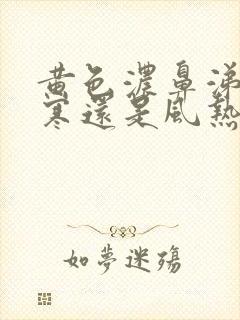 黄色濃鼻涕
寒還是風熱
如夢迷殤